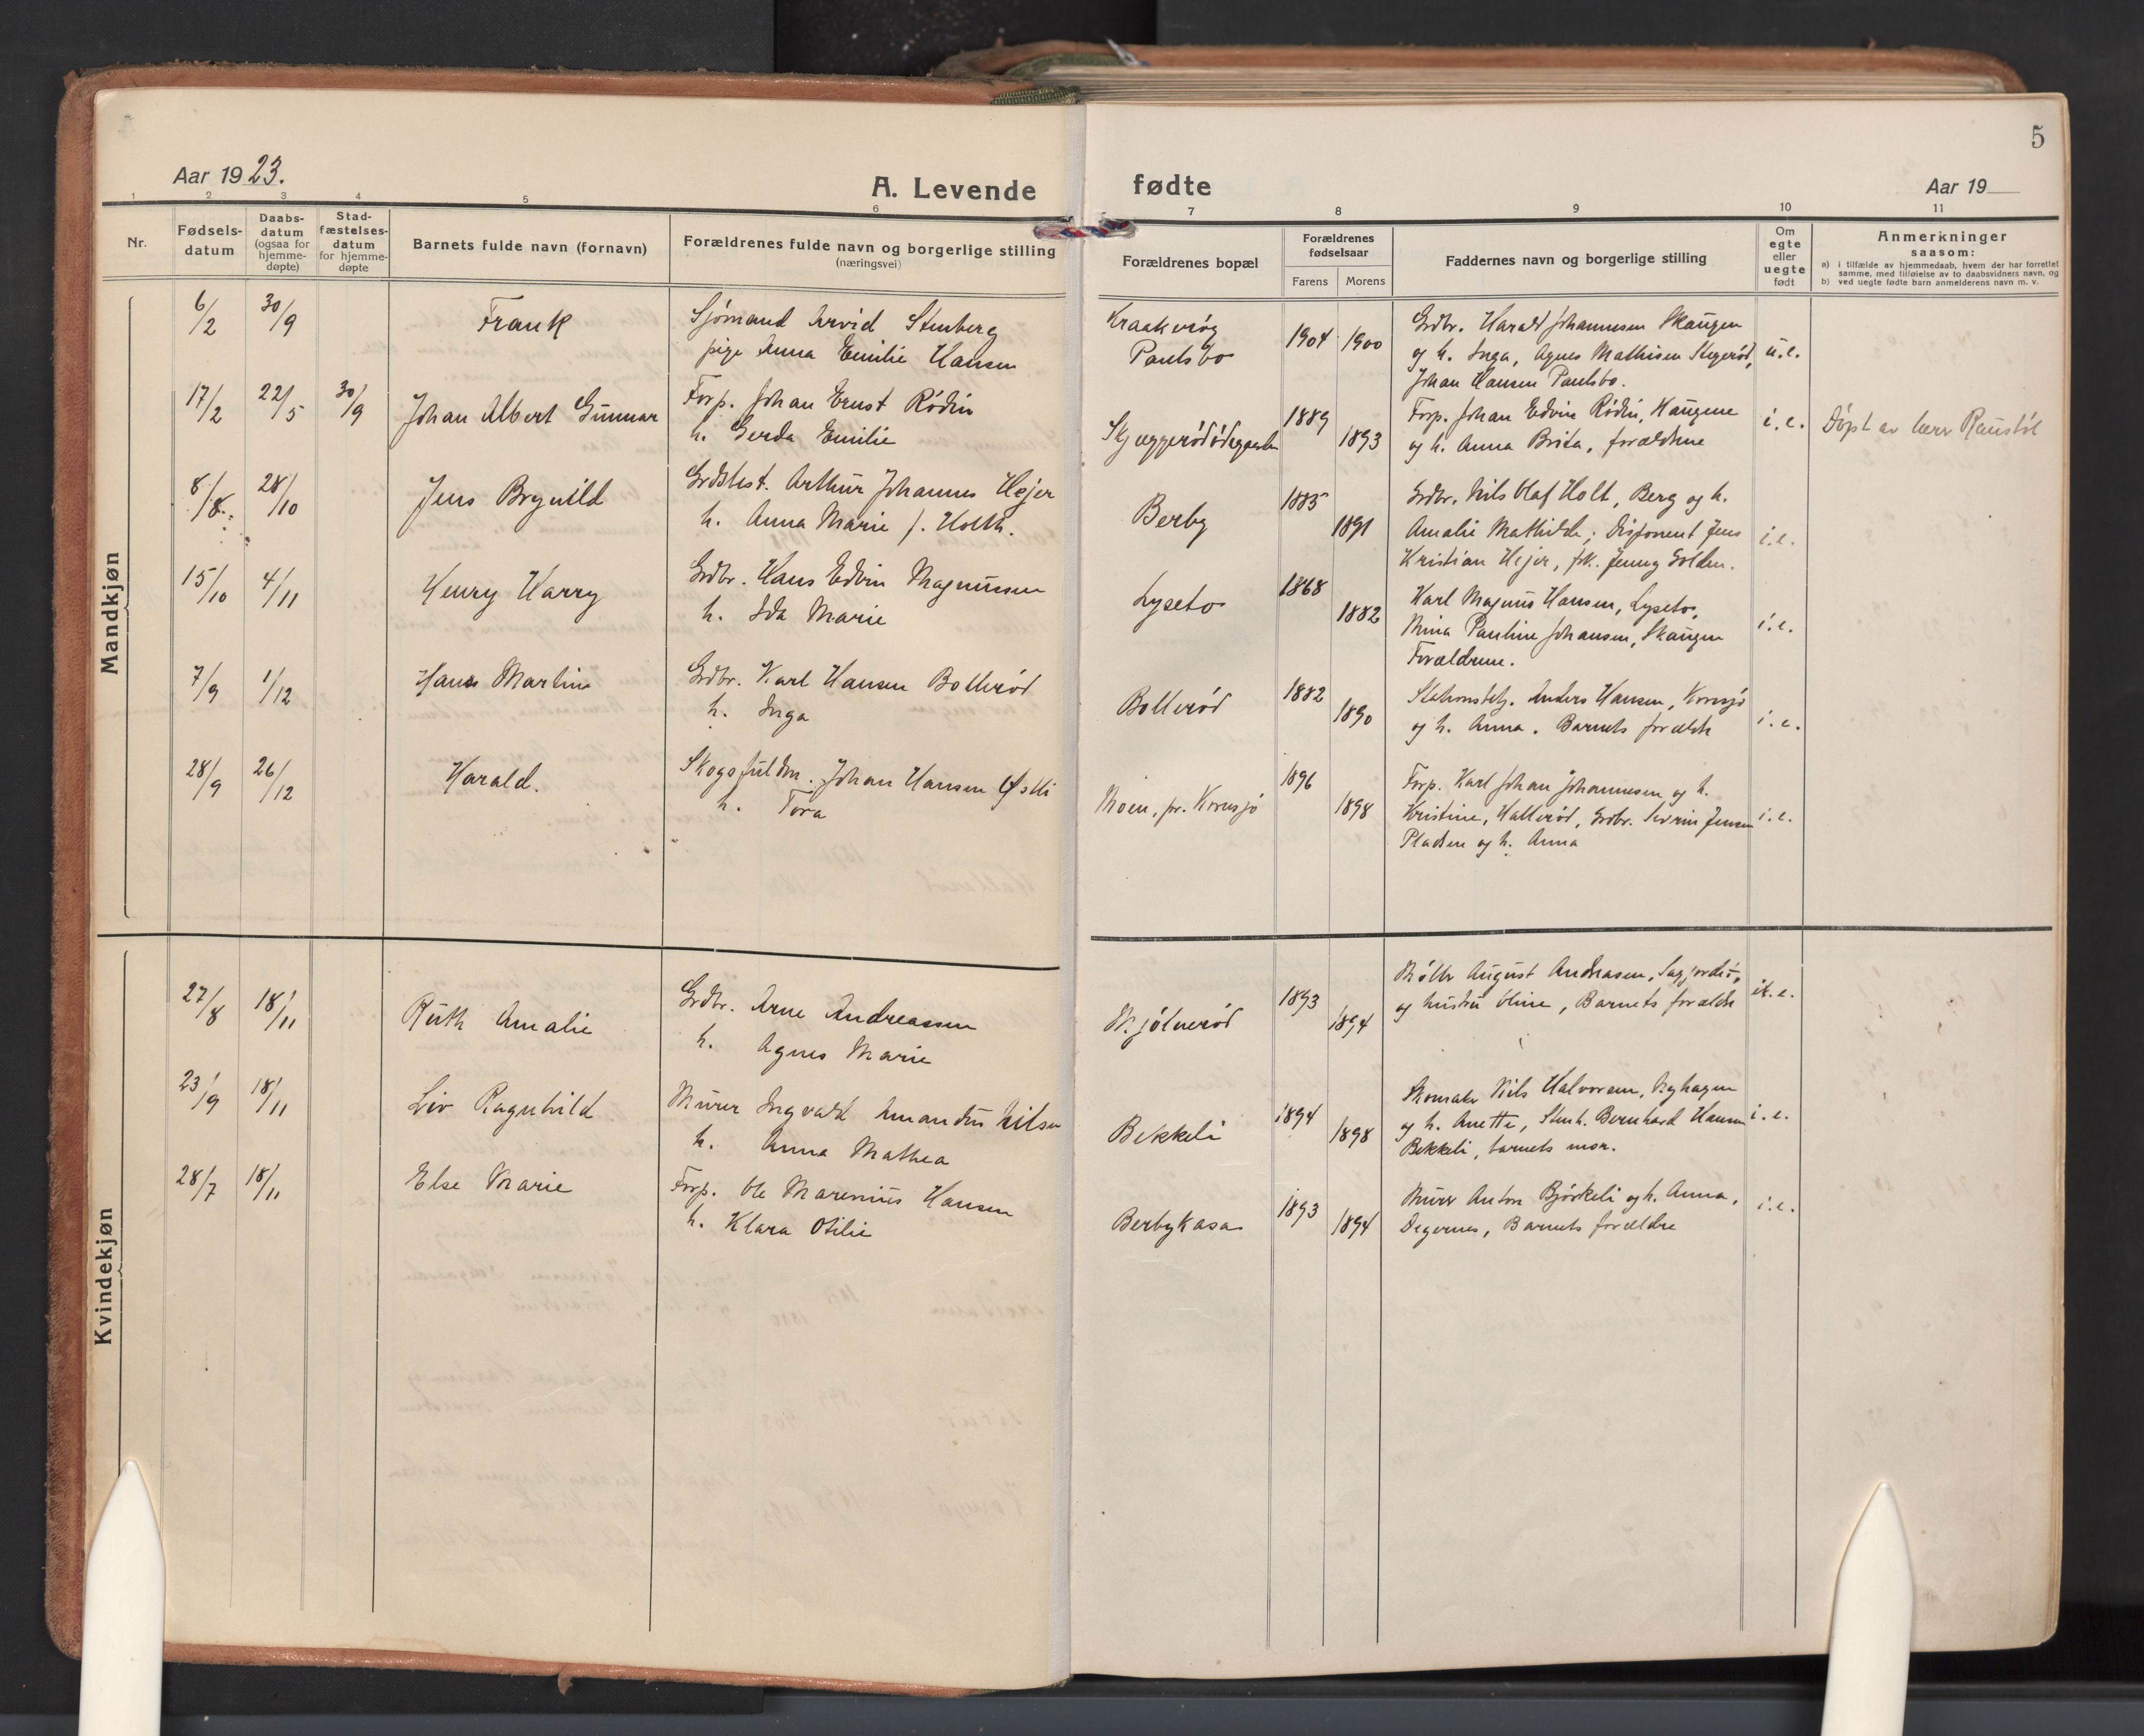 5
Aar 1923.
A. Levende fødte
Aar 19
1 2 3 4 5 6 7 8 9 10 11
Nr.
Fødsels-
datum
Daabs-
datum
(ogsaa for
hjemme-
døpte)
Stad-
fæstelses-
datum
for hjemme-
døpte
Barnets fulde navn (fornavn)
Forældrenes fulde navn og borgerlige stilling
(næringsvei)
Forældrenes bopæl
Forældrenes
fødselsaar
Farens Morens
Faddernes navn og borgerlige stilling
Om
egte
eller
uegte
født
Anmerkninger
saasom:
a) i tilfælde av hjemmedaab, hvem der har forrettet
samme, med tilføielse av to daabsvidners navn, og
b) ved uegte fødte barn anmelderens navn m. v.
Mandkjøn
6/2 30/9 Frank
Sjømand Arvid Stenberg
pige Anna Emilie Hansen
Kraakviög
Paulsbo
1904 1900
Grdbr. Harald Johannesen Skaugen
og h. Inga, Agnes Mathisen Stegerød,
Johan Hansen Paulsbo.
u.e.
17/2 22/5 30/9 Johan Albert Gunnar
Forp. Johan Ernst Rödin
h. Gerda Emilie
Skjæggerödödegaarden
1889
1893
Forp. Johan Edvin Rödin, Haugene
og h. Anna Brita, forældrene
i.e.
Döpt av herr Raustöl
8/8. 28/10 Jens Brynild
Grdbest. Arthur Johannes Hejer
h. Anna Marie f. Holth.
Berby
1885
1891
Grdbr. Nils Olaf Holt, Berg og h.
Amalie Mathilde; Disponent Jens
Kristian Hejer, frk. Jenny Golden.
i.e.
15/10 4/11 Henry Harry
Grdbr. Hans Edvin Magnussen
h. Ida Marie
Lyseto
1868
1882
Karl Magnus Hansen, Lyseto,
Mina Pauline Johansen, Skaugen
Forældrene.
i.e.
7/9 1/12 Hans Martin
Grdbr. Karl Hansen Bollerød
h. Inga
Bollerød
1882
1890
Stationsbetj. Anders Hansen, Kornsjø
og h. Anna. Barnets forældre
i.e.
28/9 26/12 Harald.
Skogsfuldm. Johan Hansen Østli
h. Tora
Moen, pr. Kornsjø
1896
1898
Forp. Karl Johan Johannesen og h.
Kristine, Hallerød, Grdbr. Severin Jensen
Pladsen og h. Anna
i.e.
Kvindekjøn
27/8 18/11 Ruth Amalie
Grdbr. Arne Andreassen
h. Agnes Marie
Mjölnerød
1893
1894
Möller August Andreasen, Sagjordet,
og hustru Oline, Barnets forældre
i.e.
23/9 18/11 Liv Ragnhild
Murer Ingvald Amandus Nilsen
h. Anna Mathea
Bekkeli
1894
1898
Skomaker Nils Halvorsen, Nyhagen
og h. Anette, Stenh. Bernhard Hansen
Bekkeli, barnets mor.
i.e.
28/7 18/11 Else Marie
Forp. Ole Marenius Hansen
h. Klara Otilie
Berbykasa
1893
1894
Murer Anton Bjørkeli og h. Anna,
Degernes, Barnets forældre
i.e.